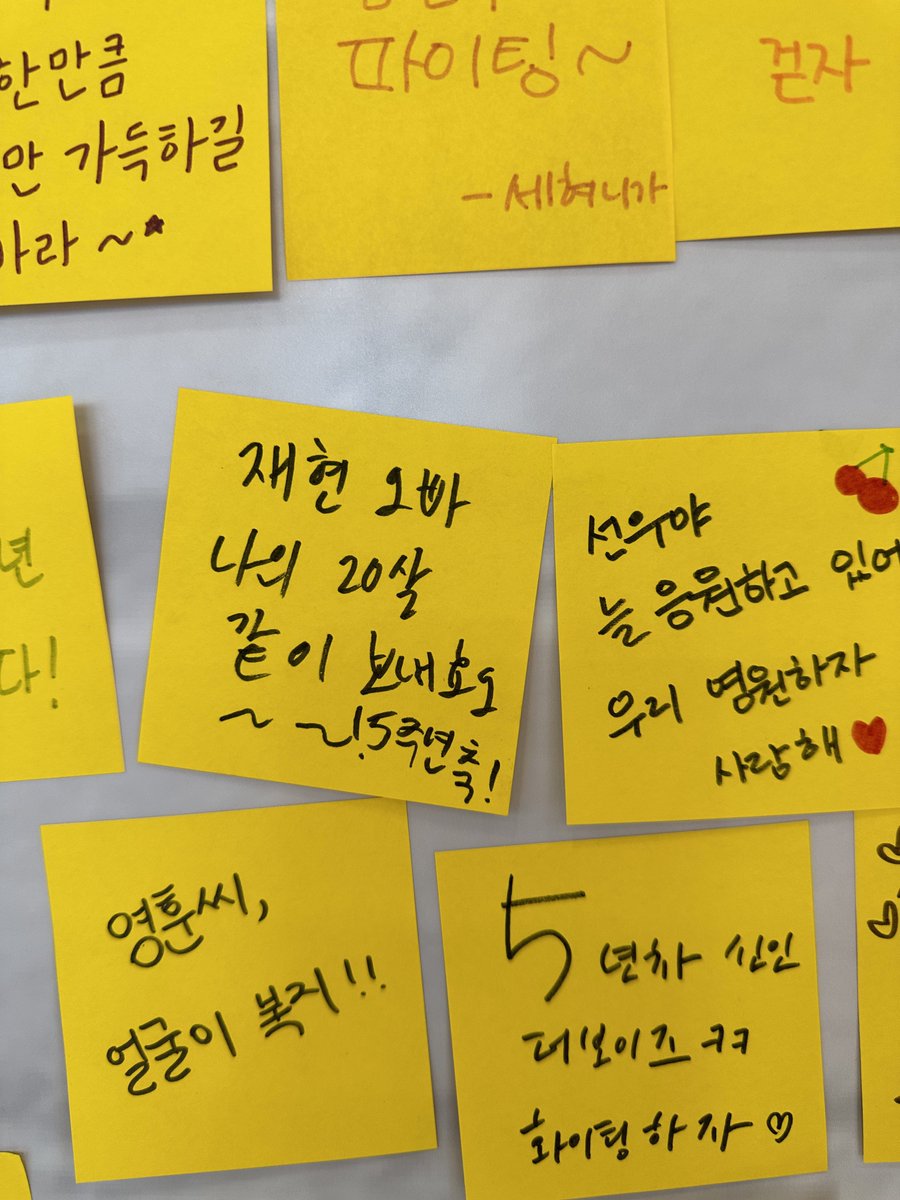 한만큼
만 가득하길
바라 ~
파이팅~
-세혀니가
걷자
년
다!
재현 오빠
나의 20살
같이 보내효오
~ ~! 5주년축!
선우야
늘 응원하고 있어
우리 영원하자
사랑해
영훈씨,
얼굴이 복지!!
5년차 신인
더보이즈 ㅋㅋ
화이팅하자♡